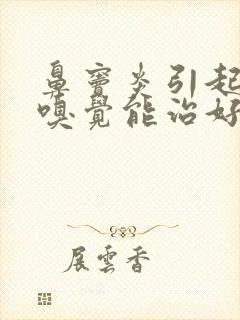 鼻窦炎引起
嗅覺能治好
展雲香